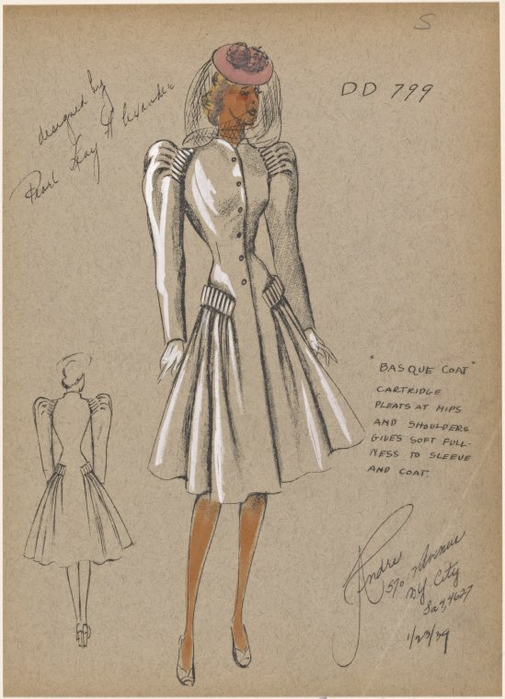 S
designed by
Pearl Levy Alexander
DD 799
"BASQUE COAT"
CARTRIDGE
PLEATS AT HIPS
AND SHOULDERS
GIVES SOFT FULL-
NESS TO SLEEVE
AND COAT.
Andre
570 7 Avenue
N.Y. City
1/23/39